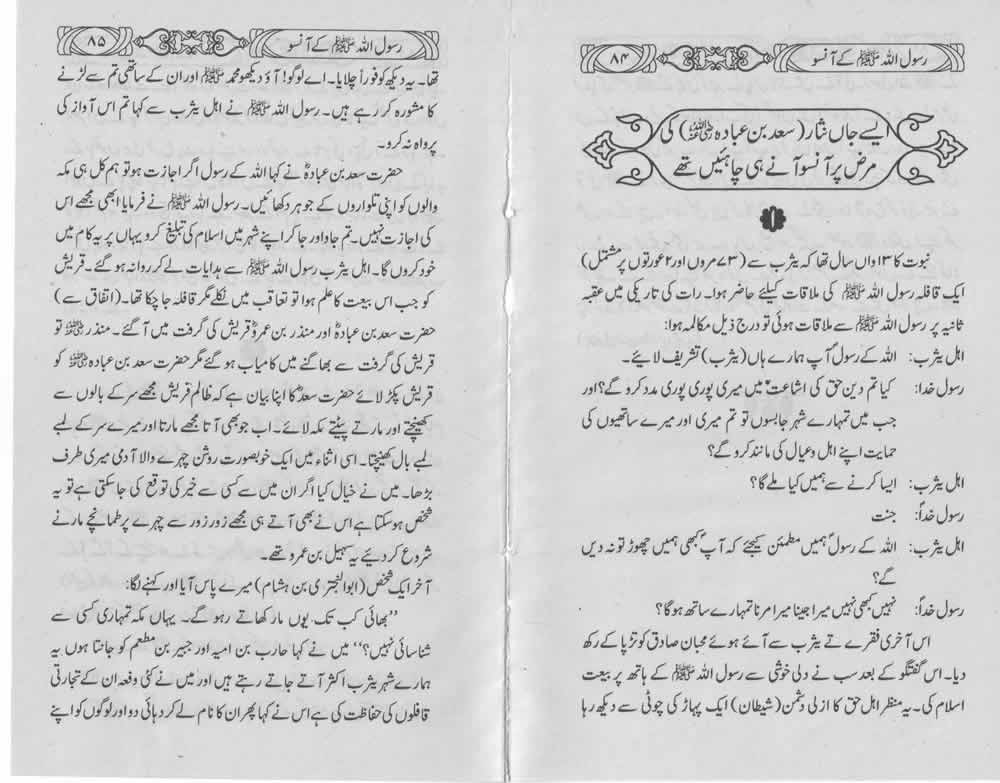 رسول اللہ ﷺ کے آنسو
۸۴
ایسے جاں نثار (سعد بن عبادہ ؓ) کی
مرض پر آنسو آنے ہی چاہئیں تھے
۱
نبوت کا ۱۳ واں سال تھا کہ یثرب سے (۷۳ مردوں اور ۲ عورتوں پر مشتمل)
ایک قافلہ رسول اللہ ﷺ کی ملاقات کیلئے حاضر ہوا۔ رات کی تاریکی میں عقبہ
ثانیہ پر رسول اللہ ﷺ سے ملاقات ہوئی تو درج ذیل مکالمہ ہوا:
اہل یثرب: اللہ کے رسولؐ آپ ہمارے ہاں (یثرب) تشریف لائیے۔
رسول خدا: کیا تم دین حق کی اشاعت میں میری پوری پوری مدد کرو گے؟ اور
جب میں تمہارے شہر جا بسوں تو تم میری اور میرے ساتھیوں کی
حمایت اپنے اہل و عیال کی مانند کرو گے؟
اہل یثرب: ایسا کرنے سے ہمیں کیا ملے گا؟
رسول خداؐ: جنت
اہل یثرب: اللہ کے رسولؐ ہمیں مطمئن کیجئے کہ آپؐ کبھی ہمیں چھوڑ تو نہ دیں
گے؟
رسول خداؐ: نہیں کبھی نہیں میرا جینا میرا مرنا تمہارے ساتھ ہو گا؟
اس آخری فقرے نے یثرب سے آئے ہوئے محبان صادق کو تڑپا کے رکھ
دیا۔ اس گفتگو کے بعد سب نے دلی خوشی سے رسول اللہ ﷺ کے ہاتھ پر بیعت
اسلام کی۔ یہ منظر اہل حق کا ازلی دشمن (شیطان) ایک پہاڑ کی چوٹی سے دیکھ رہا
رسول اللہ ﷺ کے آنسو
۸۵
تھا۔ یہ دیکھ کو فوراً چلایا۔ اے لوگو! آؤ دیکھو محمد ﷺ اور ان کے ساتھی تم سے لڑنے
کا مشورہ کر رہے ہیں۔ رسول اللہ ﷺ نے اہل یثرب سے کہا تم اس آواز کی
پرواہ نہ کرو۔
حضرت سعد بن عبادہؓ نے کہا اللہ کے رسول اگر اجازت ہو تو ہم کل ہی مکہ
والوں کو اپنی تلواروں کے جوہر دکھائیں۔ رسول اللہ ﷺ نے فرمایا ابھی مجھے اس
کی اجازت نہیں۔ تم جاؤ اور جا کر اپنے شہر میں اسلام کی تبلیغ کرو یہاں پر یہ کام میں
خود کروں گا۔ اہل یثرب رسول اللہ ﷺ سے ہدایات لے کر روانہ ہو گئے۔ قریش
کو جب اس بیعت کا علم ہوا تو تعاقب میں نکلے مگر قافلہ جا چکا تھا۔ (اتفاق سے)
حضرت سعد بن عبادہؓ اور منذر بن عمروؓ قریش کی گرفت میں آ گئے۔ منذر ؓ تو
قریش کی گرفت سے بھاگنے میں کامیاب ہو گئے مگر حضرت سعد بن عبادہ ؓ کو
قریش پکڑ لائے حضرت سعدؓ کا اپنا بیان ہے کہ ظالم قریش مجھے سر کے بالوں سے
کھینچتے اور مارتے پیٹتے مکہ لائے۔ اب جو بھی آتا مجھے مارتا اور میرے سر کے لمبے
لمبے بال کھینچتا۔ اسی اثناء میں ایک خوبصورت روشن چہرے والا آدمی میری طرف
بڑھا۔ میں نے خیال کیا اگر ان میں سے کسی سے خیر کی توقع کی جا سکتی ہے تو یہ
شخص ہو سکتا ہے اس نے بھی آتے ہی مجھے زور زور سے چہرے پر طمانچے مارنے
شروع کر دیئے یہ سہیل بن عمرو تھے۔
آخر ایک شخص (ابوالبختری بن ہشام) میرے پاس آیا اور کہنے لگا:
”بھائی کب تک یوں مار کھاتے رہو گے۔ یہاں مکہ تمہاری کسی سے
شناسائی نہیں؟“ میں نے کہا حارب بن امیہ اور جبیر بن مطعم کو جانتا ہوں یہ
ہمارے شہر یثرب اکثر آتے جاتے رہتے ہیں اور میں نے کئی دفعہ ان کے تجارتی
قافلوں کی حفاظت کی ہے اس نے کہا پھر ان کا نام لے کر دہائی دو اور لوگوں کو اپنے